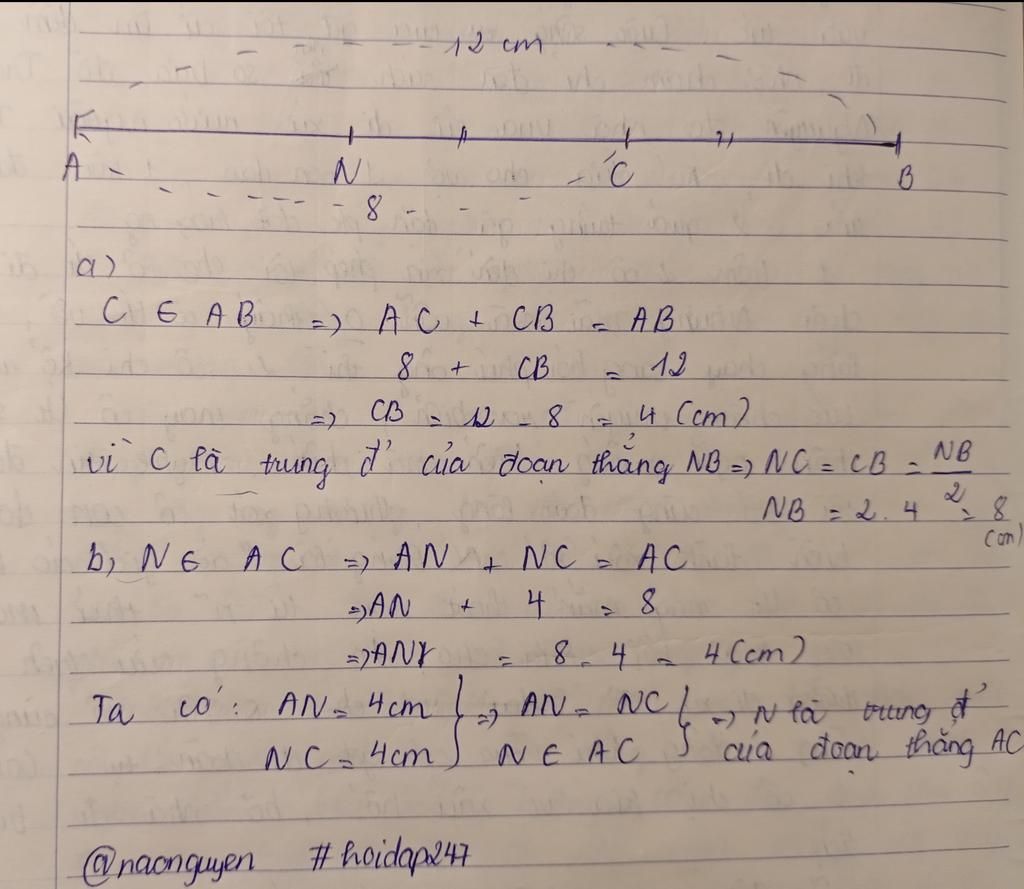 12 cm
A N C B
8
a)
C ∈ AB => AC + CB = AB
8 + CB = 12
=> CB = 12 - 8 = 4 (cm)
vì C là trung đ' của đoạn thẳng NB => NC = CB = NB/2
NB = 2.4 = 8 (cm)
b, N ∈ AC => AN + NC = AC
=> AN + 4 = 8
=> AN = 8 - 4 = 4 (cm)
Ta có: AN = 4cm } => AN = NC } => N là trung đ'
NC = 4cm } N ∈ AC } của đoạn thẳng AC
@naonguyen #hoidap247